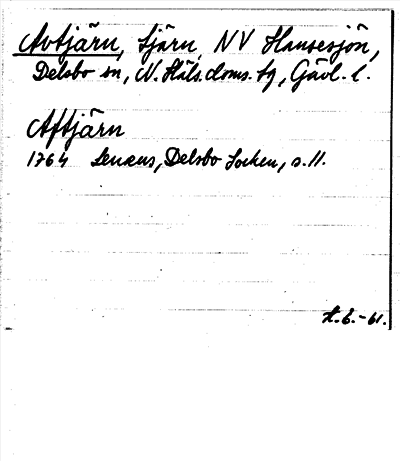 Avtjärn, tjärn, NV Hansesjön,
Delsbo sn, N. Häls. doms. tg, Gävl. l.
Aftjärn
1764 Lenæus, Delsbo Socken, s. 11.
-61.